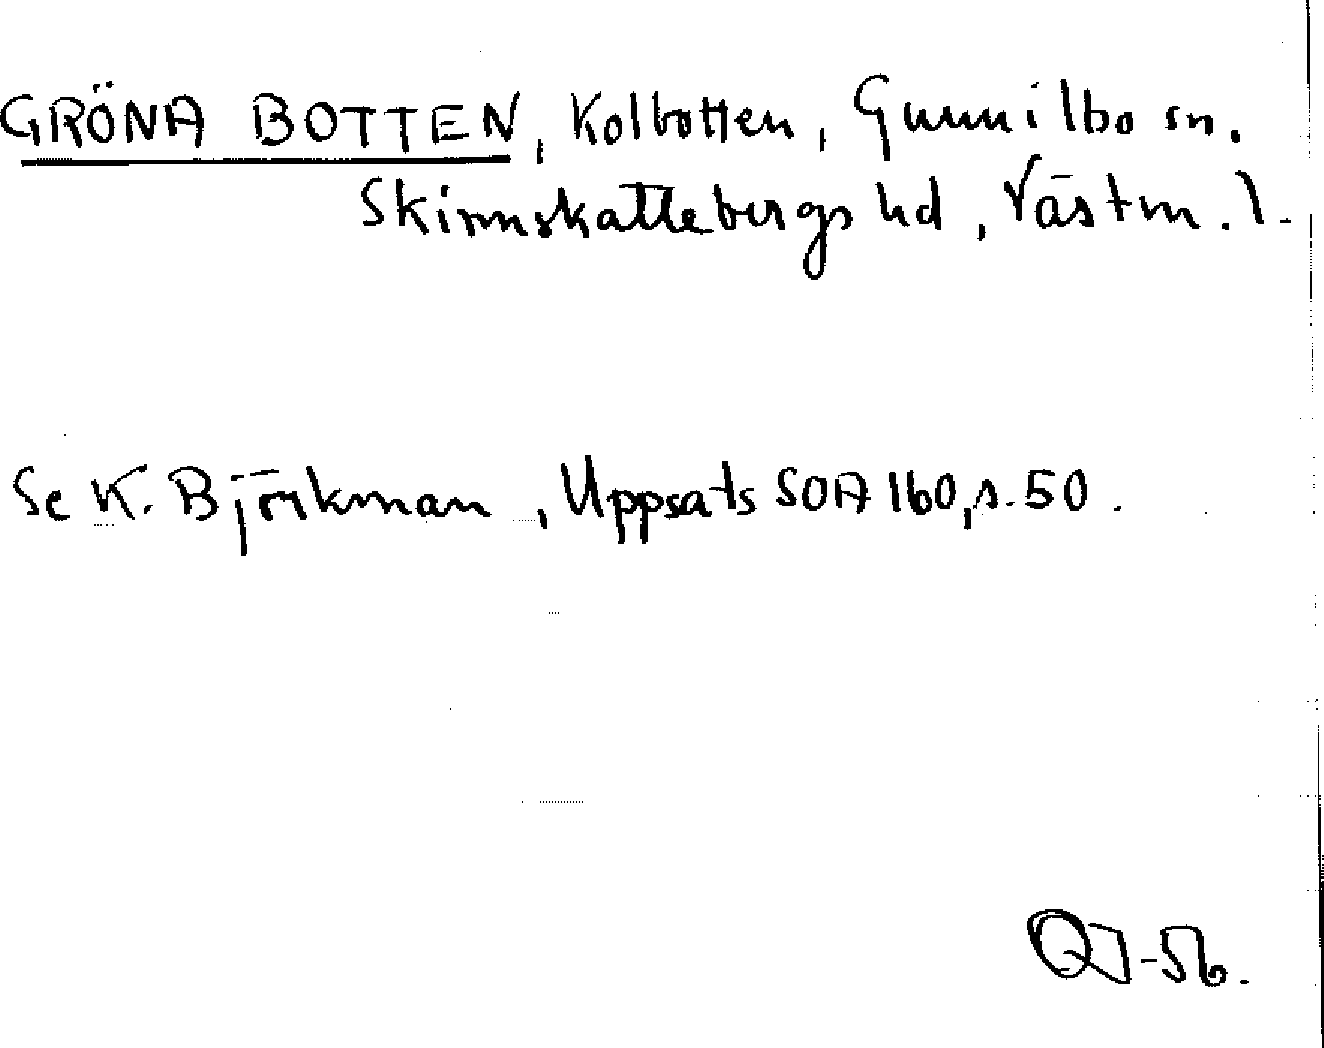 GRÖNA BOTTEN, Kolbotten, Gunnilbo sn.
Skinnskattebergs hd, Västm. l.
Se K. Björkman, Uppsats SOA 160, s. 50.
QJ-56.